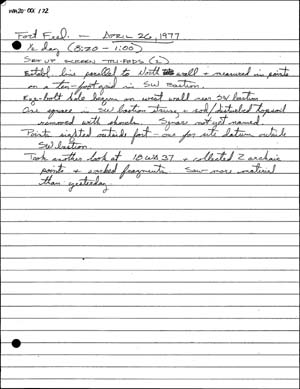 WM20-001 172
Fort Fred. - APRIL 26, 1977
½ day (8:30 - 1:00)
SET UP SCREEN - TRI-PODS (2)
Establ. line parallel to North wall & measured in points
on a ten-foot grid in SW bastion.
Eye-bolt hole begun on west wall near SW bastion
One square in SW bastion strung & sod/disturbed topsoil
removed with shovels. Square not yet named.
Points sighted outside fort - one for site datum outside
SW bastion.
Took another look at 18WA37 & collected 2 archaic
points & worked fragments. Saw more material
than yesterday.